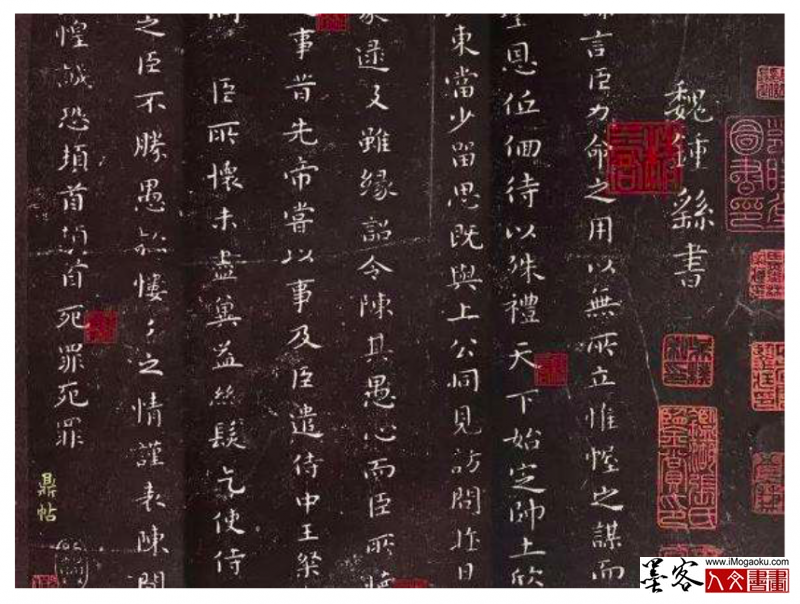 魏鍾繇書
繇言臣力命之用以無所立惟幄之謀而
聖恩低佪待以殊禮 天下始定帥土欣
東當少留思既與上公同見訪問昨日
蒙逮及雖緣詔令陳其愚心而臣所懷
事昔先帝嘗以事及臣遣侍中王粲
臣所懷未盡冀益絲髮乞使侍
之臣不勝愚款慺〻之情謹表陳聞
惶誠恐頓首頓首死罪死罪
鼎帖
www.iMogaoku.com
墨客人文書畫